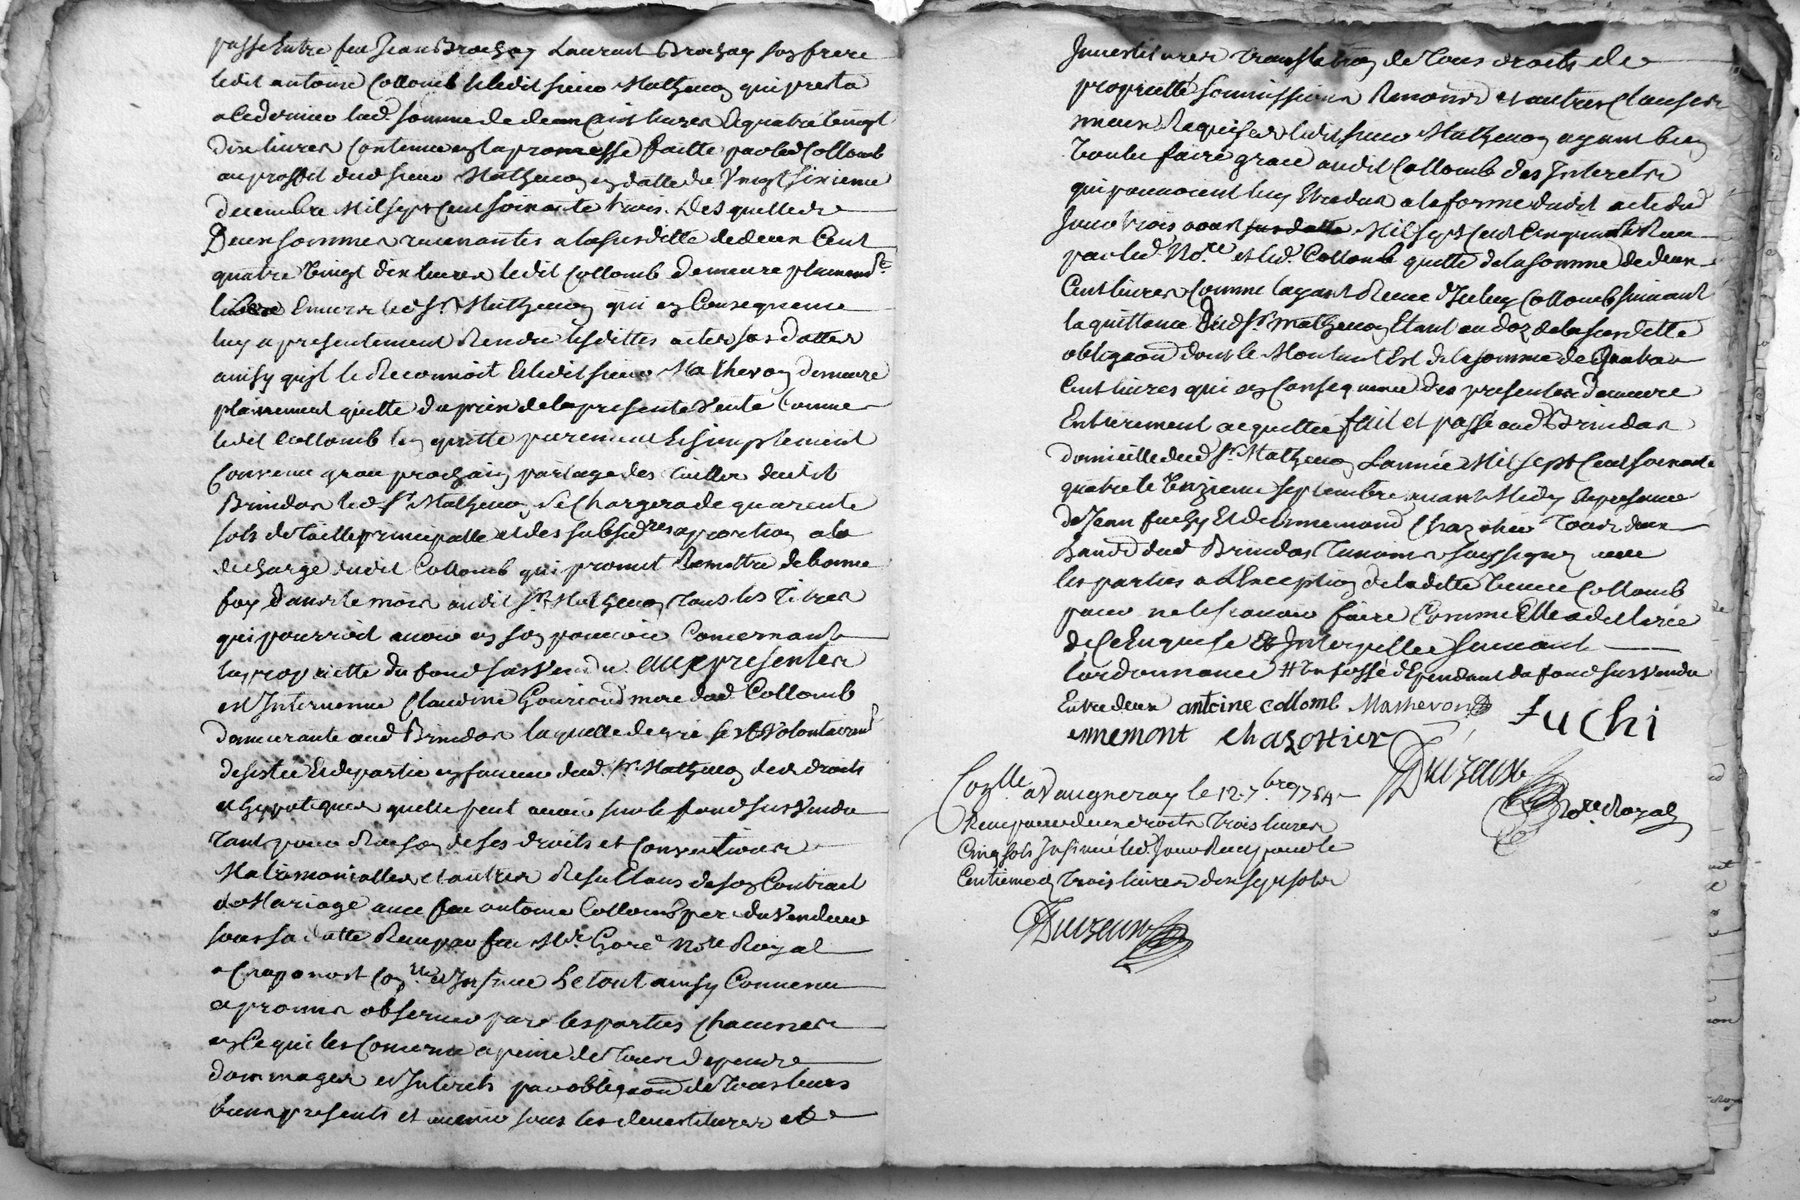 passé Entre feu Jean Brochay Laurent Brochay son frere
ledit antoine Collomb et ledit sieur Mathevon qui presta
a ce dernier lad. somme de deux Cent livres Et quatre vingt
dix livres Contenue en la promesse faitte par led Collomb
au proffit dud sieur Mathevon en datte du Vingt sixieme
decembre Mil sept Cent soixante trois. Desquelles
Deux sommes revenantes a la susditte de deux Cent
quatre Vingt dix livres ledit Collomb demeure plainemt.
libéré Envers led Sr. Mathevon qui en Consequence
luy a presentement Rendu lesdittes actes sus dattés
ainsy qu'il le Reconnoit Et ledit sieur Mathevon demeure
plainement quitte du prix de la presente Vente Comme
ledit Collomb l'en quitte purement Et simplement
Convenu qu'au prochain partage des tailles dudit
Brindas led Sr. Mathevon Se Chargera de quarente
sols de Taille principalle et des subsidres a portion a la
decharge dudit Collomb qui promet Remettre de bonne
foy dans le mois audit Sr. Mathevon tous les Titres
qui pourroit avoir en son pouvoir Concernant
la proprietté du fond sus Vendu. aux presentes
est Intervenue Claudine Gouriand mere dud Collomb
demeurante aud Brindas laquelle de gré sest Volontairemt
desistée Et departie en faveur dud. Sr. Mathevon des droits
et hypoteques quelle peut avoir sur le fond sus Vendu
tant pour Raison de ses droits et Conventions
Matrimonialles et autres Resultans de son Contract
de Mariage avec feu antoine Collomb pere du Vendeur
sous sa datte Reçu par feu Mr. Goré Nore Royal
a Craponost Conllé et Insinué Le tout ainsy Convenu
et promis observer par les parties Chacunes
en Ce qui les Concerne a peine de tous depends
dommages et Interets par obligaon de tous leurs
biens presents et avenir sous les devestitures et
Investitures translation de tous droits de
proprietté soumissions Renonon et autres Clauses
mieux Requises ledit sieur Mathevon ayant bien
Voulu faire grace audit Collomb des Interets
qui pouvoient luy Etre dus a la forme dudit acte dud
Jour trois aoust sus datté Mil sept Cent Cinquante
par led. Nore et led. Collomb quitte de la somme de deux
Cent livres Comme layant Reçue d'Iceluy Collomb suivant
la quittance dud Sr. mathevon Etant au doz de la susditte
obligaon dont le Montant Est de la somme de Quatre
Cent livres qui en Consequence des presentes demeure
Entierement acquittée fait et passé aud Brindas
domicille dud Sr. Mathevon L'année Mil sept Cent soixante
quatre le Unzieme septembre avant Midy En presence
de Jean fuchy Et de Ennemond Chazottier tous deux
dud Brindas temoins soussignez avec
les parties a L'Exception de laditte Veuve Collomb
pour ne le scavoir faire Comme Elle a declaré
de Ce Enquise Et Interpellee suivant
l'ordonnance # Un fossé dependant du fond sus Vendu
Entre deux antoine collomb Mathevon fuchi
ennemont chazottier
Conllé a Vaugneray le 12. 7bre 1764
Reçu pour deux droits trois livres
Cinq sols Insinué led. Jour Reçu pour le
Centieme d. trois livres dix sept sols
Nore. Royal